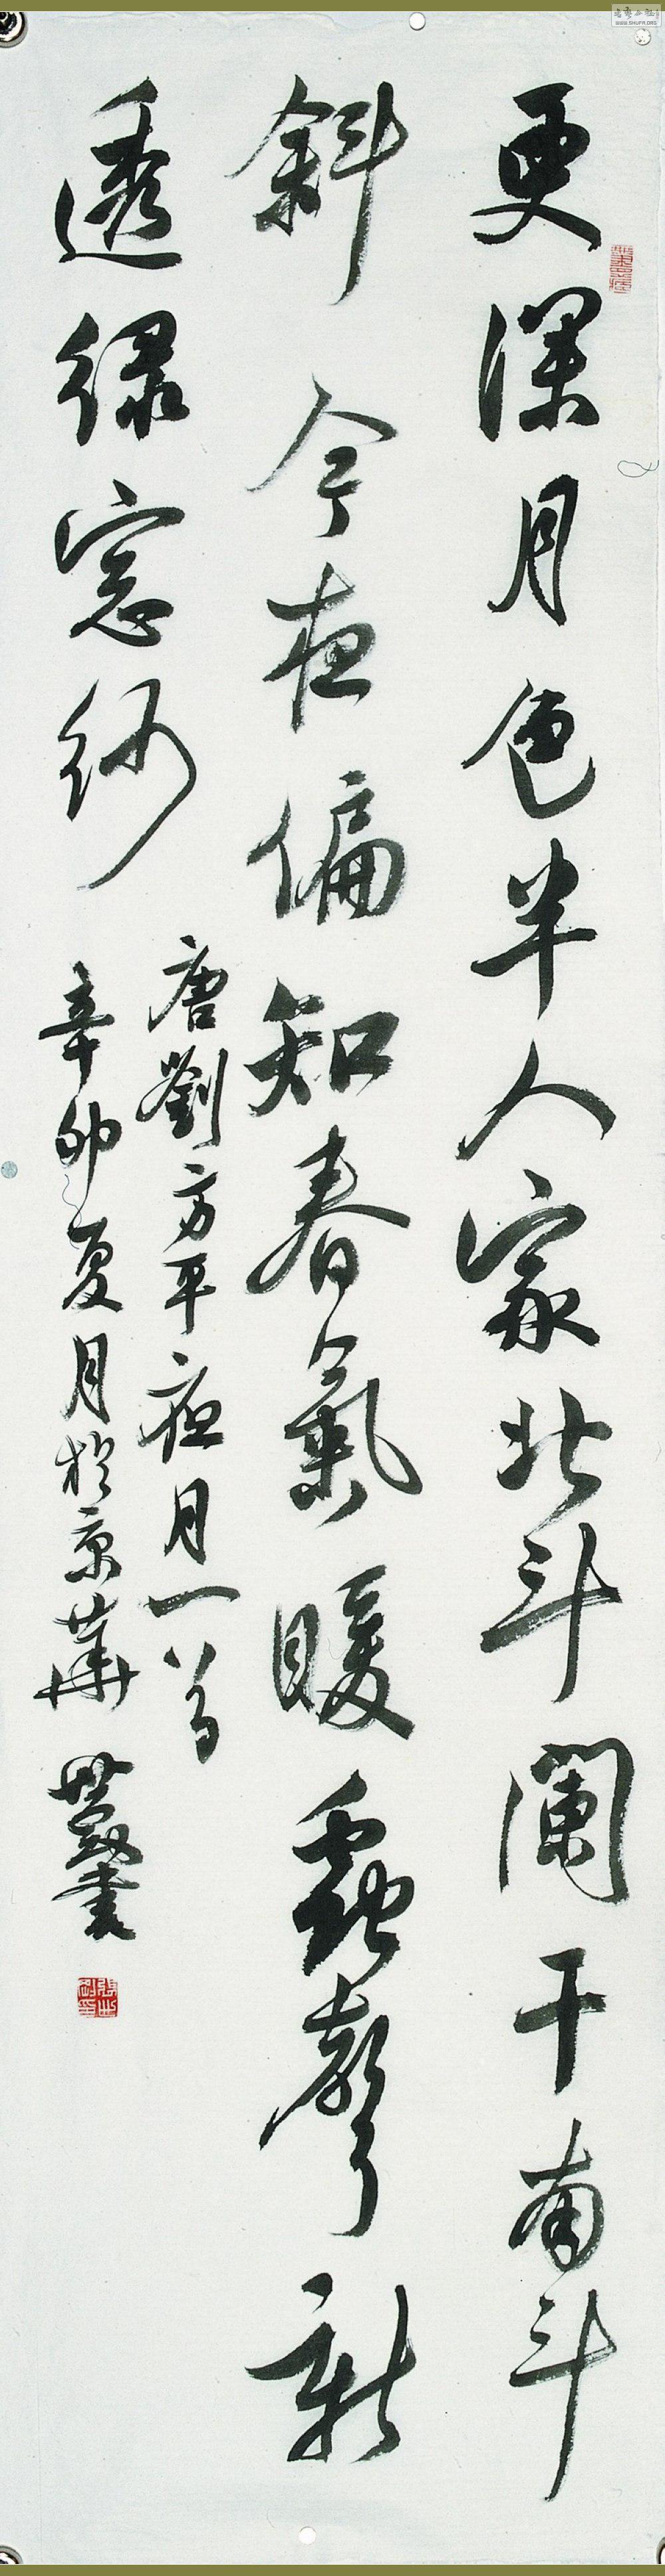 更深月色半人家北斗闌干南斗
斜今夜偏知春氣暖蟲聲新
透绿窓紗
唐劉方平夜月一首
辛卯夏月於京華
WWW.SHUFA.ORG